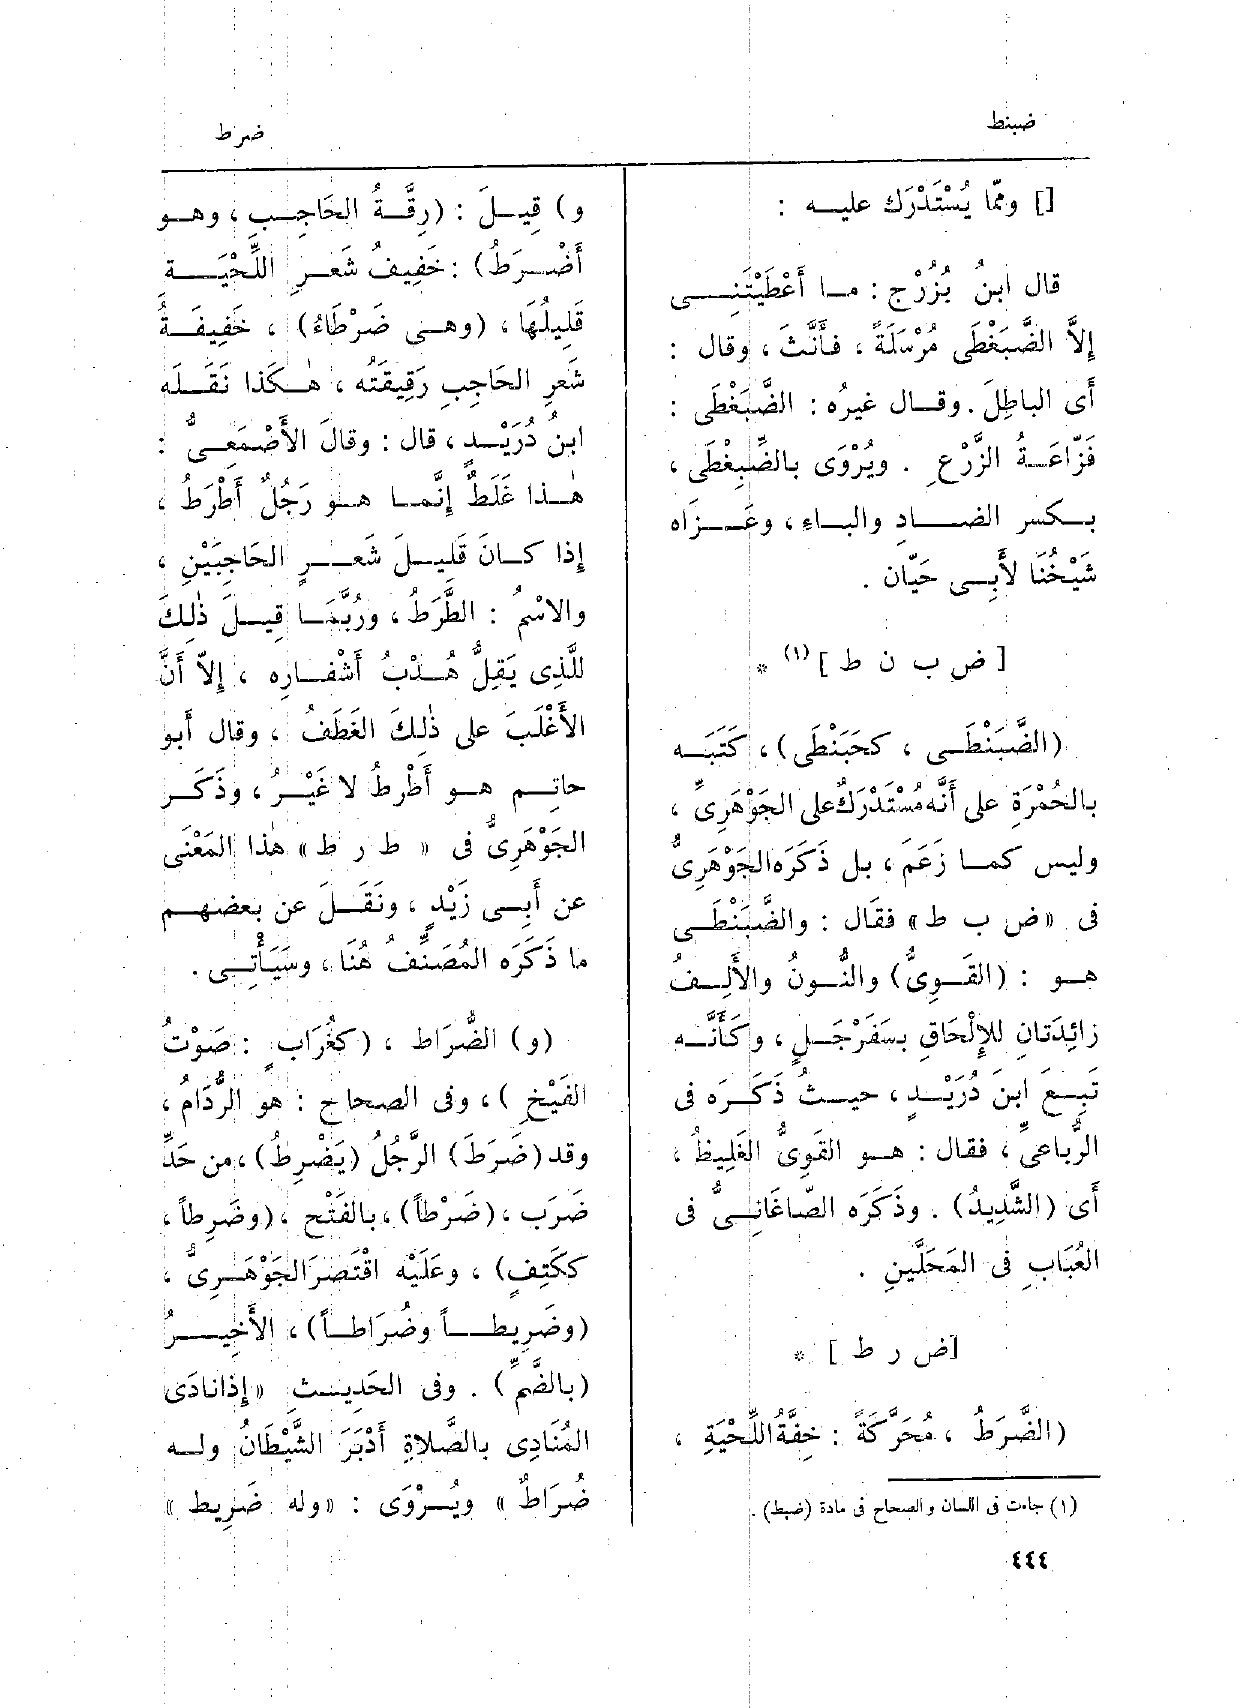 ضبنط
ضرط
[] وممّا يُسْتَدْرَك عليـــه :
قال ابنُ بُزُرْج : مــا أَعْطَيْتَنِــى
إلاَّ الضَّبَغْطَى مُرْسَلَةً ، فأَنَّثَ ، وقال :
أَى الباطِلَ . وقــال غيرُه : الضَّبَغْطَى :
فَزّاعَــةُ الزَّرْعِ . ويُرْوَى بالضِّبِغْطَى ،
بــكسر الضــادِ والبــاءِ ، وعَــزَاه
شَيْخُنَا لأَبِــى حَيّان .
[ ض ب ن ط ] (١) *
(الضَّبَنْطَــى ، كحَبَنْطَى) ، كَتَبَــه
بالحُمْرَةِ على أَنَّه مُسْتَدْرَكٌ على الجَوْهَرِىِّ ،
وليس كمــا زَعَمَ ، بل ذَكَرَه الجَوْهَرِىُّ
فى «ض ب ط» فقَال : والضَّبَنْطَــى
هــو : (القَــوِىُّ) والنُّــونُ والأَلِــفُ
زائِدَتانِ للإِلْحَاقِ بسَفَرْجَــلٍ ، وكَأَنَّــه
تَبِــعَ ابنَ دُرَيْــدٍ ، حيــثُ ذَكَــرَه فى
الرّباعىِّ ، فقال : هــو القَوِىُّ الغَلِيظُ ،
أَى (الشَّدِيدُ) . وذَكَرَه الصّاغَانِــىُّ فى
العُبَابِ فى المَحَلَّينِ .
[ض ر ط ] *
(الضَّرَطُ ، مُحَرَّكَةً : خِفَّةُ اللِّحْيَةِ ،
(١) جاءت فى اللسان والصحاح فى مادة (ضبط) .
و) قِيــلَ : (رِقَّــةُ الحَاجِــبِ ، وهــو
أَضْــرَطُ) : خَفِيفُ شَعــرِ اللِّحْيَــةِ
قَلِيلُهَا ، (وهــى ضَرْطَاءُ) ، خَفِيفَــةُ
شَعرِ الحاجِبِ رَقِيقَتُه ، هٰــكَذا نَقَــلَه
ابنُ دُرَيْــدٍ ، قال : وقالَ الأَصْمَعِــىُّ :
هٰــذا غَلَطٌ إنَّمــا هــو رَجُلٌ أَطْرَطُ ،
إذا كــانَ قَلِيــلَ شَعــرِ الحَاجِبَيْنِ ،
والاسْمُ : الطَّرَطُ ، ورُبَّمَــا قِيــلَ ذٰلِكَ
للَّذِى يَقِلُّ هُــدْبُ أَشْفــارِه ، إلاّ أَنَّ
الأَغْلَبَ على ذٰلِــكَ الغَطَفُ ، وقال أَبو
حاتِــم هــو أَطْرطُ لا غَيْــرُ ، وذَكَــر
الجَوْهَرِىُّ فى « ط ر ط » هٰذا المَعْنَى
عن أَبِــى زَيْدٍ ، ونَقَــلَ عن بعضهــم
ما ذَكَرَه المُصَنِّفُ هُنَا ، وسَيَأْتِــى .
(و) الضُّرَاط ، (كغُرَابٍ : صَوْتُ
الفَيْخِ ) ، وفى الصحاح : هو الرُّدَامُ ،
وقد (ضَرَطَ) الرَّجُلُ (يَضْرِطُ) ، من حَدِّ
ضَرَب ، (ضَرْطاً) ، بالفَتْح ، (وضَرِطاً ،
ككَتِفٍ) ، وعَلَيْه اقْتَصَرَ الجَوْهَــرِىُّ ،
(وضَرِيطــاً وضُرَاطــاً) ، الأَخِيــرُ
(بالضَّمِّ) . وفى الحَدِيــثِ «إذا نادَى
المُنَادِى بالصَّلاةِ أَدْبَرَ الشَّيْطَانُ ولــه
ضُرَاطٌ » ويُــرْوَى : «وله ضَرِيط »
٤٤٤